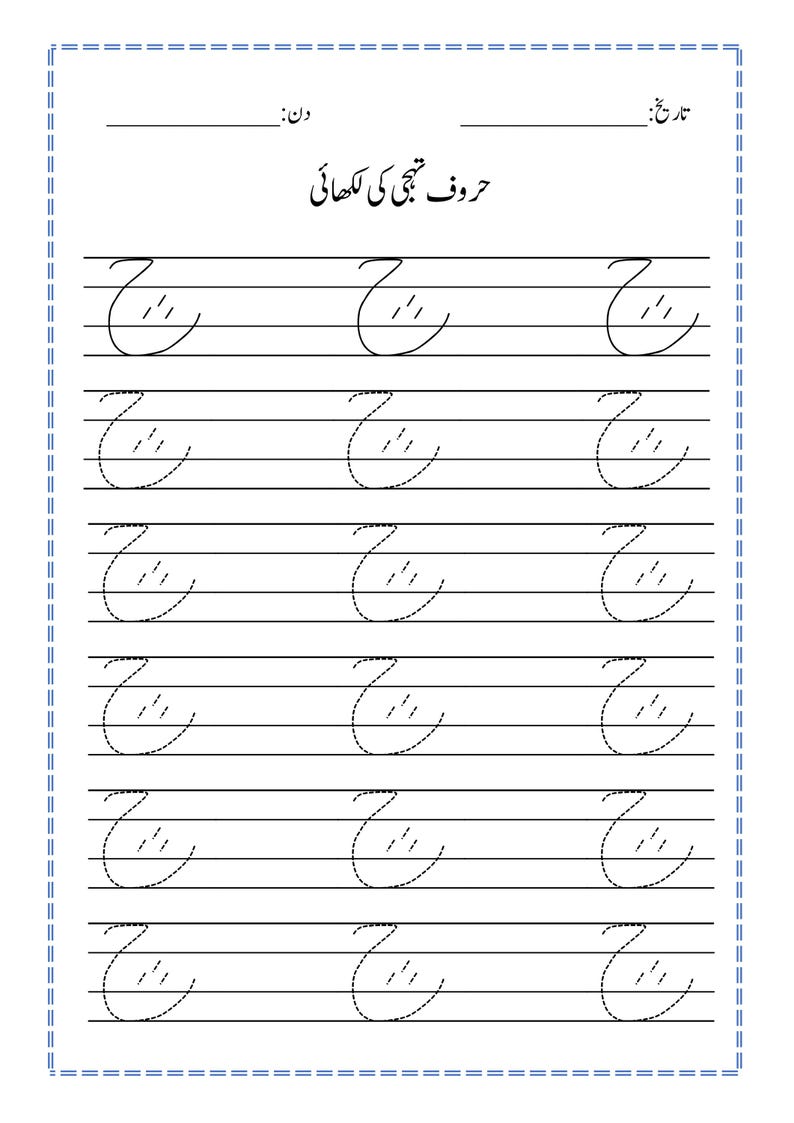 تاریخ:______________ دن:______________
حروف تہجی کی لکھائی
چ چ چ
چ چ چ
چ چ چ
چ چ چ
چ چ چ
چ چ چ